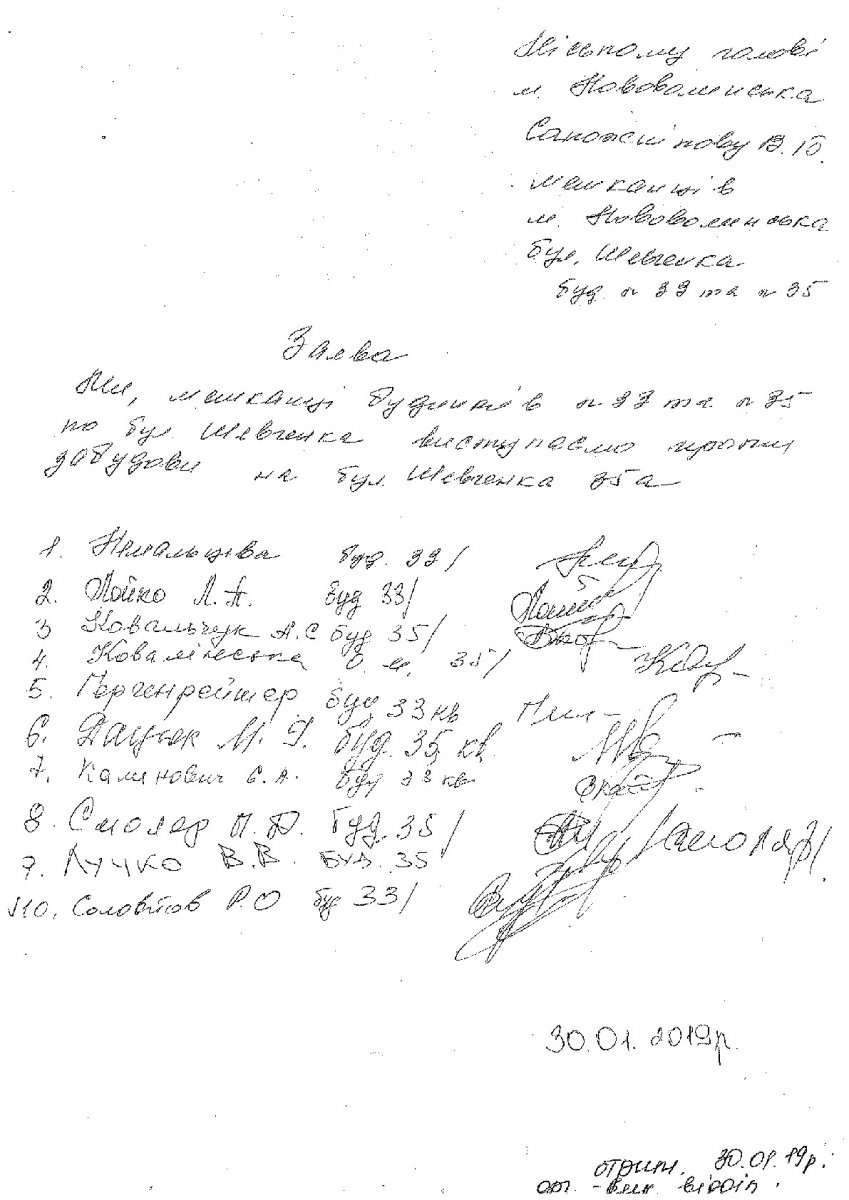 Міському голові
м. Нововолинська
Сапожнікову В.Б.
мешканців
м. Нововолинська
бул. Шевченка
буд. № 33 та № 35
Заява
Ми, мешканці будинків № 33 та № 35
по бул. Шевченка виступаємо проти
забудови на бул. Шевченка 35а
1. буд. 33/
2. Пойко Л.А. буд 33/
3 Ковальчук А.С буд 35/
4. О. М. 35/
5. Гергенрейтер буд 33 кв
6. Дацюк М. буд. 35, кв
7. Калинович Є.А. буд 33 кв
8. Смоляр П.Ф. буд. 35/
7. Лучко В.В. буд. 35
10. Соловйов Р.О буд 33/
30.01.2019р.
отрим. 30.01.19р.